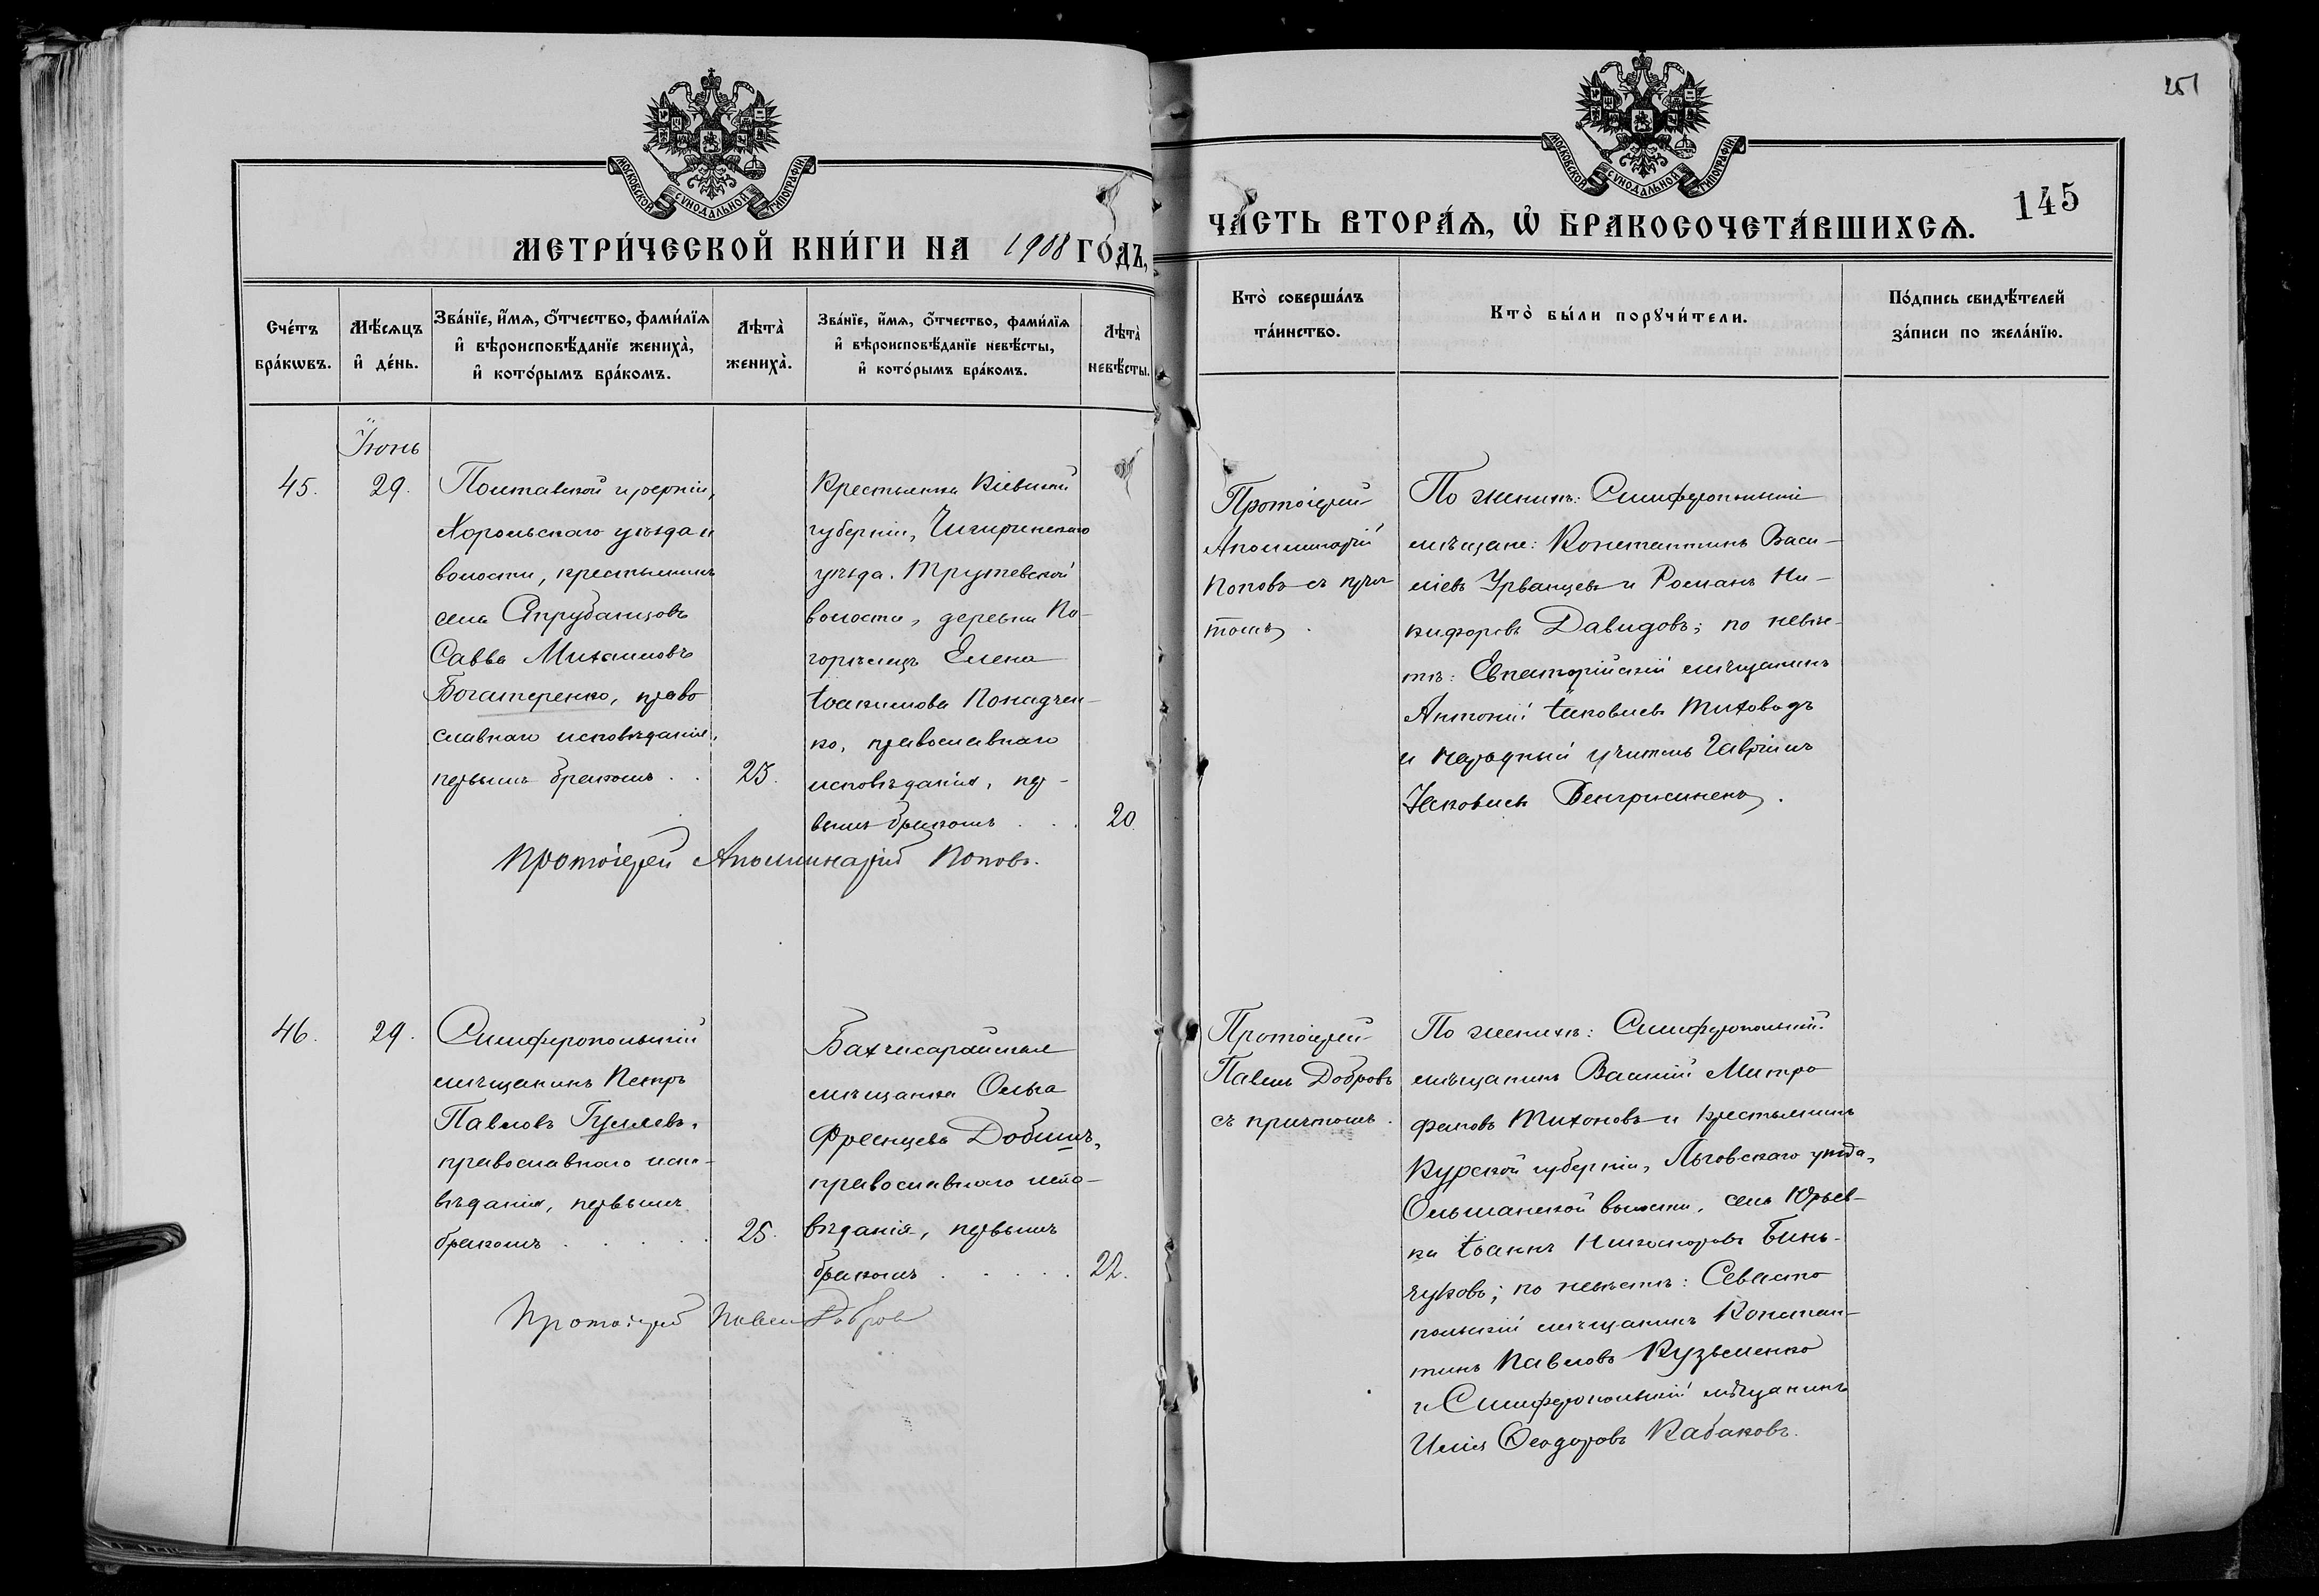 251
МОСКОВСКОЙ СѴНОДАЛЬНОЙ ТИПОГРАФІИ
МОСКОВСКОЙ СѴНОДАЛЬНОЙ ТИПОГРАФІИ
МЕТРИ́ЧЕСКОЙ КНИ́ГИ НА 1908 ГО́ДЪ,
ЧА́СТЬ ВТОРА́Ѧ, Ѡ БРАКОСОЧЕТА́ВШИХСѦ.
145
Сче́тъ бра́кѡвъ.
Мѣ́сѧцъ и де́нь.
Зва́нїе, и́мѧ, ѻ́тчество, фами́лїѧ и вѣроисповѣ́данїе жениха̀, и кото́рымъ бра́комъ.
Лѣта̀ жениха̀.
Зва́нїе, и́мѧ, ѻ́тчество, фами́лїѧ и вѣроисповѣ́данїе невѣ́сты, и кото́рымъ бра́комъ.
Лѣта̀ невѣ́сты.
Кто̀ соверша́лъ та́инство.
Кто̀ бы́ли порꙋчи́тели.
По́дпись свидѣ́телей за́писи по жела́нїю.
Іюнь
45.
29.
Полтавской губерніи,
Хорольскаго уѣзда и
волости, крестьянинъ
села
Савва Михаиловъ
Богатеренко, право
славнаго исповѣданія,
первымъ бракомъ . .
25.
Крестьянка Кіевской
губерніи, Чигиринскаго
уѣзда. Трушевской
волости, деревни По-
горѣлецъ Елена
Іоакимова Понадчен-
ко, православнаго
исповѣданія, пер-
вымъ бракомъ . . .
20
Протоіерей Аполлинарій Поповъ.
Протоіерей
Аполлинарій
Поповъ съ прич
томъ.
По женихѣ: Симферопольскіе
мѣщане: Константинъ Васи-
ліевъ Урванцевъ и Романъ Ни-
кифоровъ Давидовъ; по невѣс-
тѣ: Евпаторійскій мѣщанинъ
Антоній Іаковлевъ Тиховодъ
и народный учитель Гавріилъ
Іаковлевъ
46.
29.
Симферопольскій
мѣщанинъ Петръ
Павловъ Гуляевъ,
православнаго испо-
вѣданія, первымъ
бракомъ . . . . .
25.
Бахчисарайская
мѣщанка Ольга
Францева Добишъ,
православнаго испо-
вѣданія, первымъ
бракомъ . . . . .
22.
Протоіерей Павелъ Добровъ
Протоіерей
Павелъ Добровъ
съ причтомъ.
По женихѣ: Симферопольскій
мѣщанинъ Василій Митро
фановъ Тихоновъ и крестьянинъ
Курской губерніи, Льговскаго уѣзда,
Ольшанской волости, села Юрьев-
ки Іоаннъ Никаноровъ Бинь-
чуковъ; по невѣстѣ: Севасто
польскій мѣщанинъ Констан-
тинъ Павловъ Кузьменко
и Симферопольскій мѣщанинъ
Илія Ѳеодоровъ Кабаковъ.